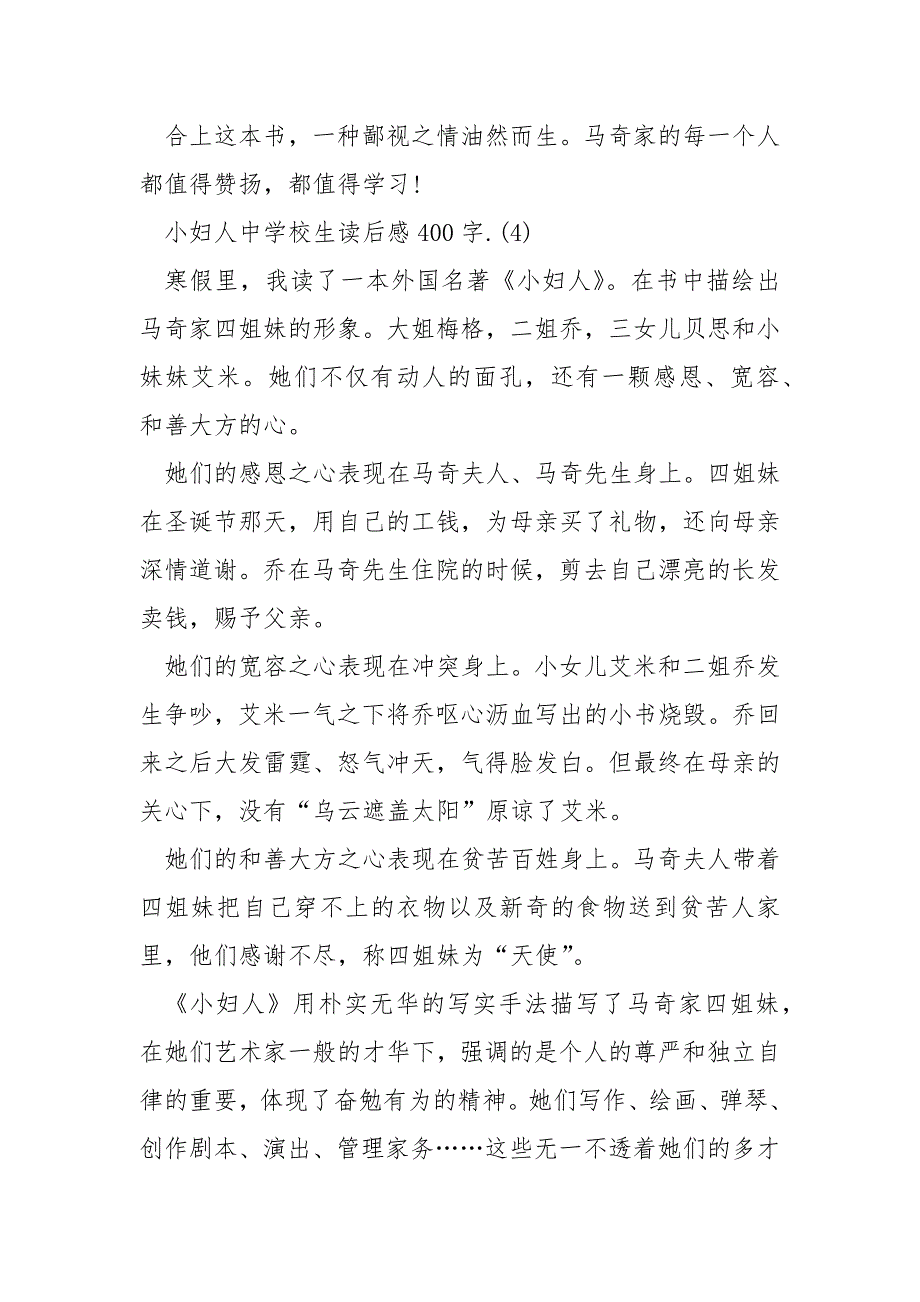 合上这本书，一种鄙视之情油然而生。马奇家的每一个人
都值得赞扬，都值得学习!
小妇人中学校生读后感 400 字.(4)
寒假里，我读了一本外国名著《小妇人》。在书中描绘出
马奇家四姐妹的形象。大姐梅格，二姐乔，三女儿贝思和小
妹妹艾米。她们不仅有动人的面孔，还有一颗感恩、宽容、
和善大方的心。
她们的感恩之心表现在马奇夫人、马奇先生身上。四姐妹
在圣诞节那天，用自己的工钱，为母亲买了礼物，还向母亲
深情道谢。乔在马奇先生住院的时候，剪去自己漂亮的长发
卖钱，赐予父亲。
她们的宽容之心表现在冲突身上。小女儿艾米和二姐乔发
生争吵，艾米一气之下将乔呕心沥血写出的小书烧毁。乔回
来之后大发雷霆、怒气冲天，气得脸发白。但最终在母亲的
关心下，没有“乌云遮盖太阳”原谅了艾米。
她们的和善大方之心表现在贫苦百姓身上。马奇夫人带着
四姐妹把自己穿不上的衣物以及新奇的食物送到贫苦人家
里，他们感谢不尽，称四姐妹为“天使”。
《小妇人》用朴实无华的写实手法描写了马奇家四姐妹，
在她们艺术家一般的才华下，强调的是个人的尊严和独立自
律的重要，体现了奋勉有为的精神。她们写作、绘画、弹琴、
创作剧本、演出、管理家务……这些无一不透着她们的多才